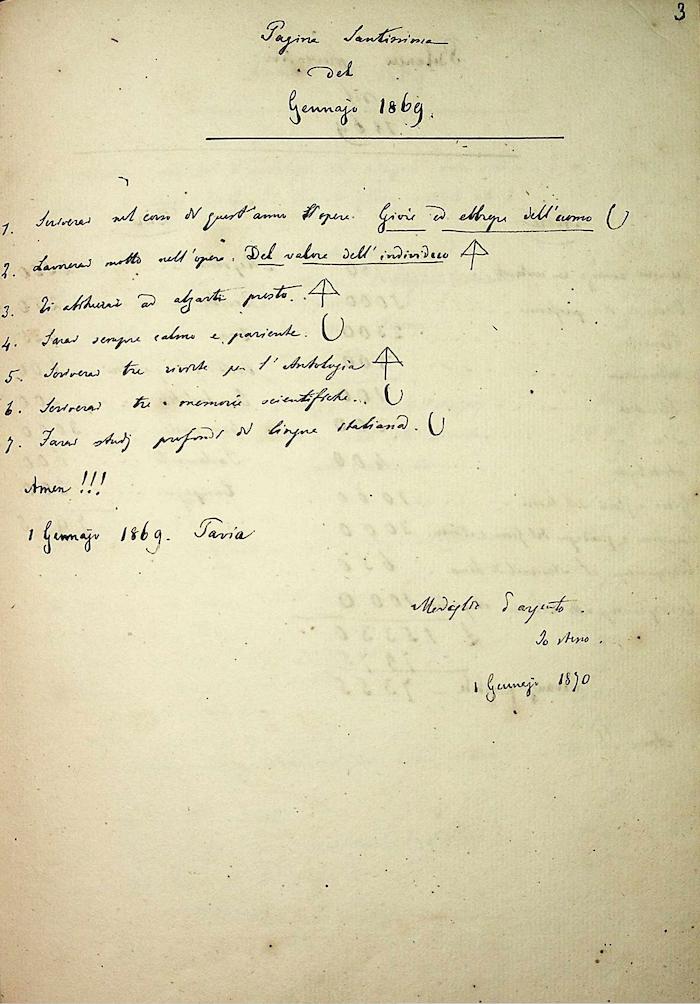 3
Pagina Santissima
del
Gennajo 1869.
1. Scriverai nel corso di quest'anno l'opera. Gioie ed ebbrezze dell'uomo
2. Lavorerai molto nell'opera. Del valore dell'individuo
3. Ti abituerai ad alzarti presto.
4. Sarai sempre calmo e paziente.
5. Scriverai tre riviste per l'Antologia
6. Scriverai tre memorie scientifiche..
7. Farai studj profondi di lingua italiana.
Amen !!!
1 Gennajo 1869. Pavia
Medaglia d'argento.
Io stesso.
1 Gennajo 1870